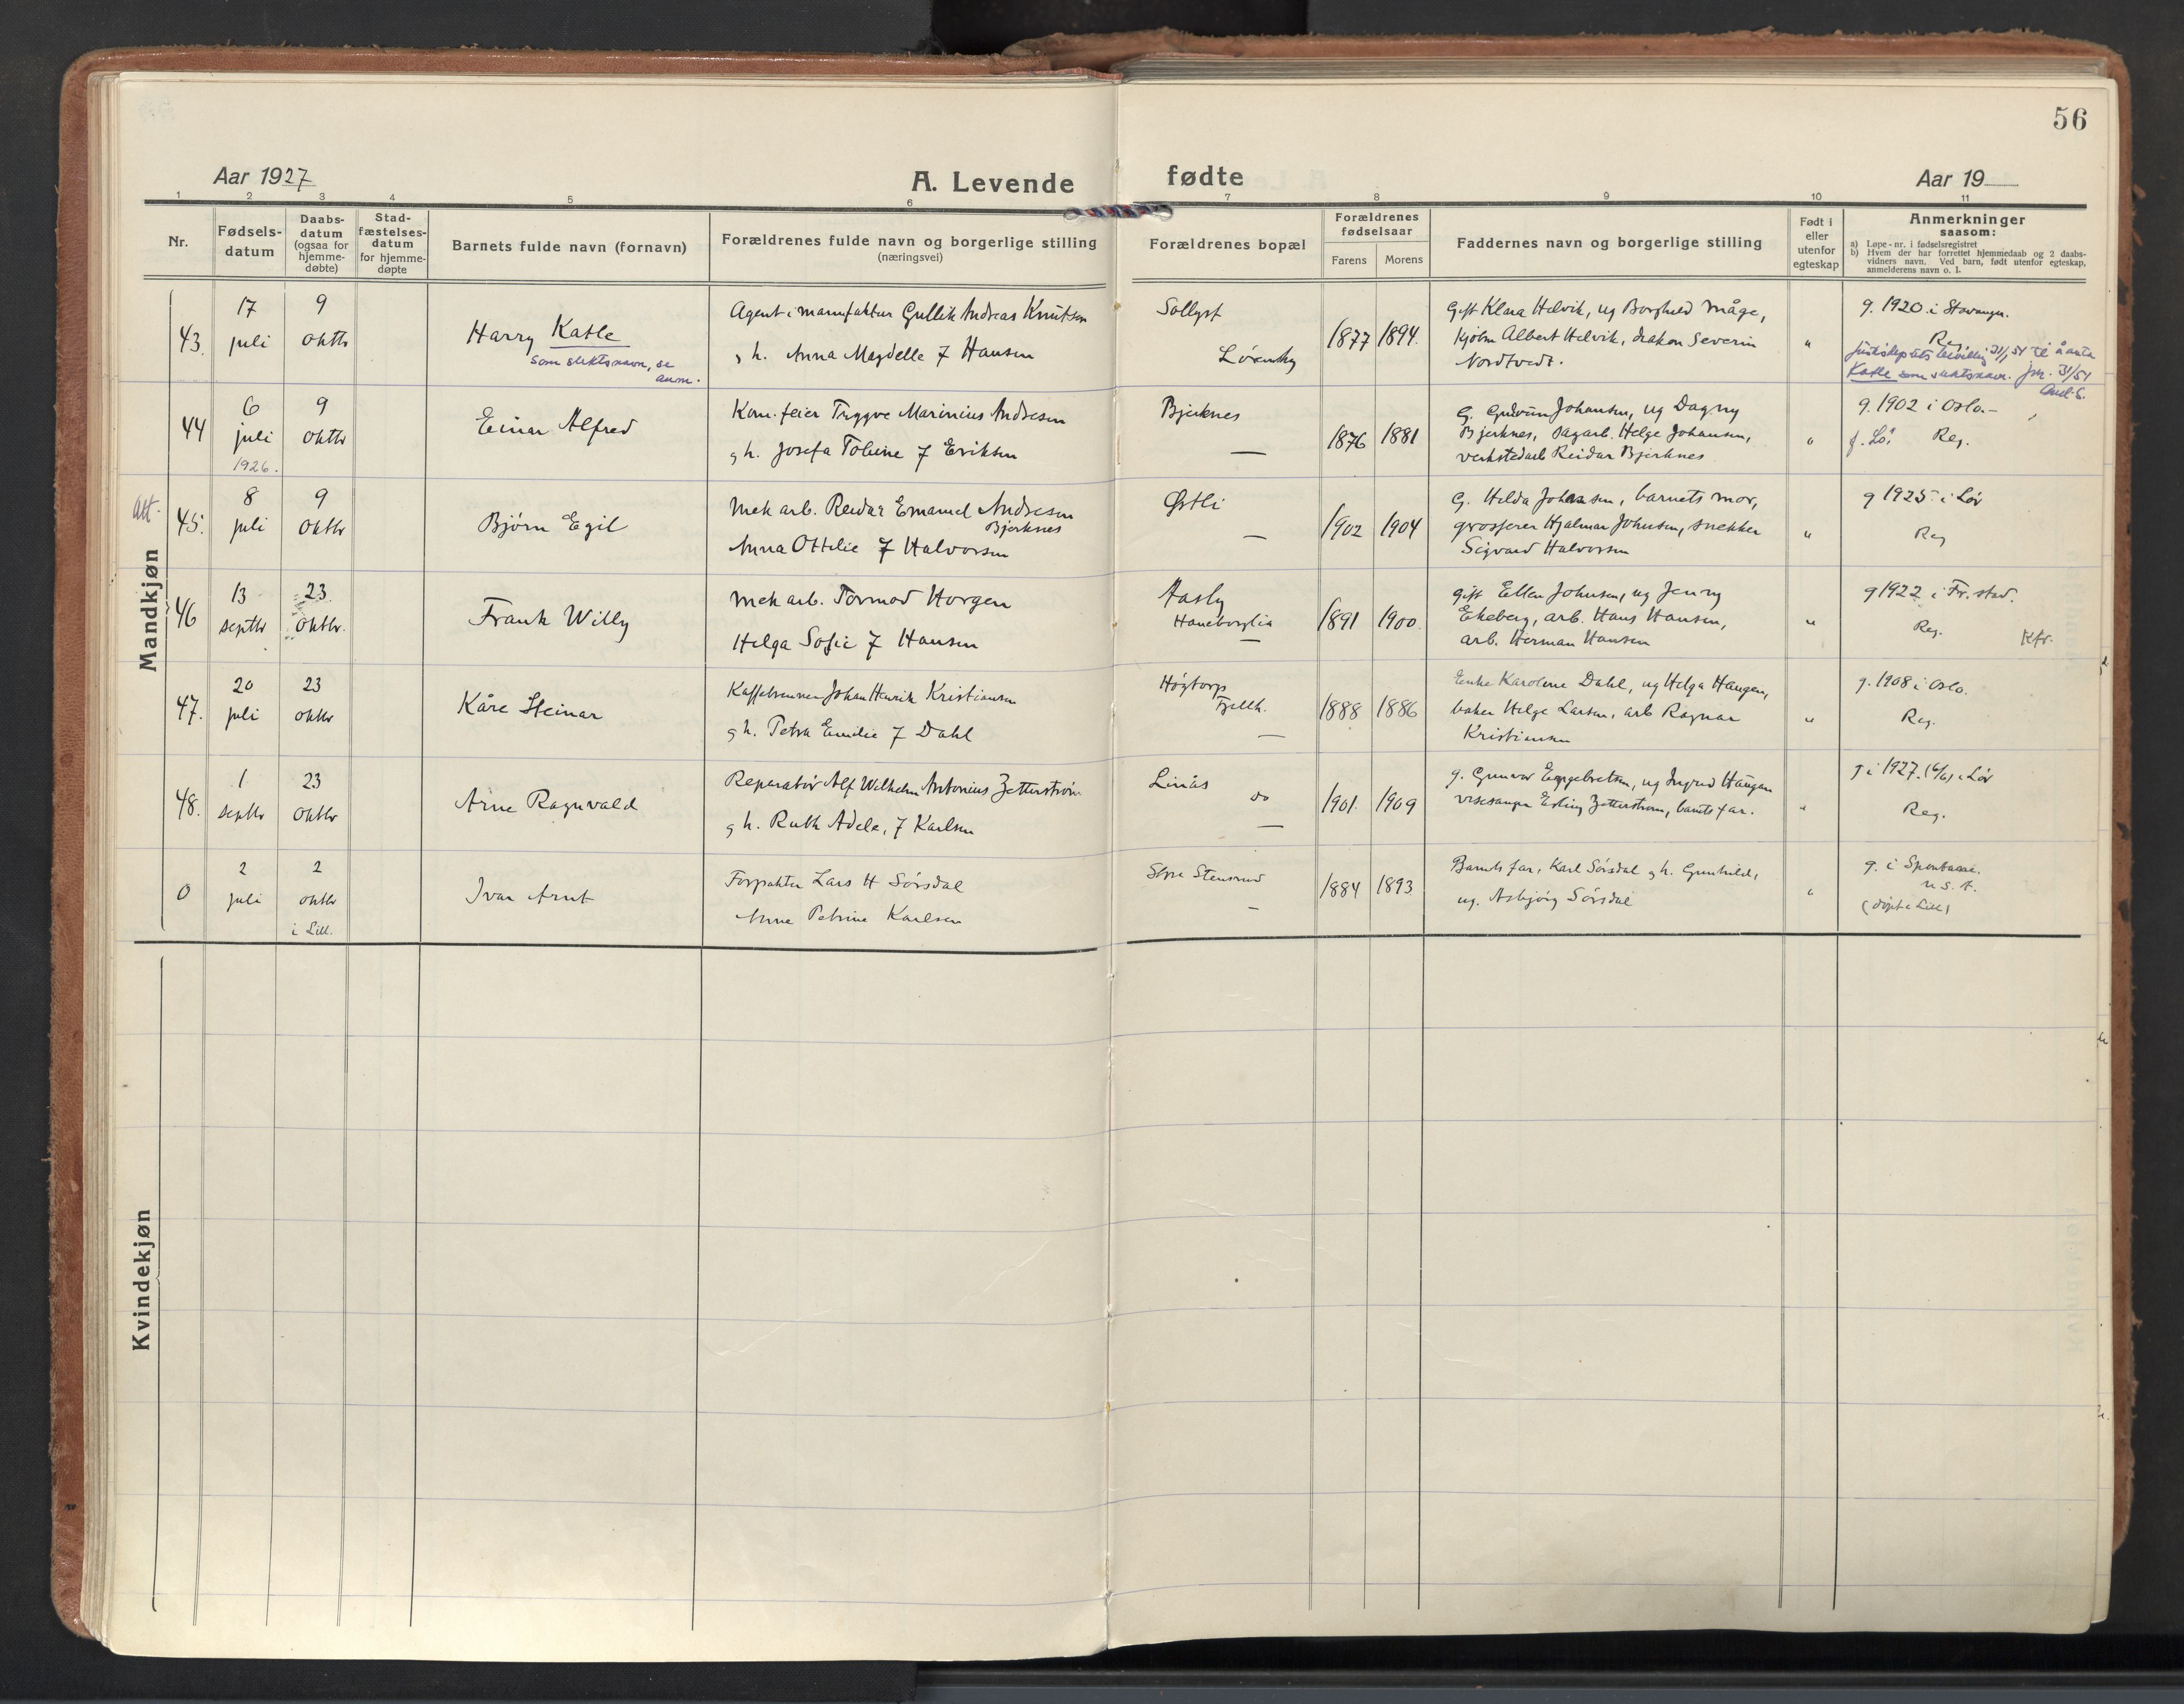 56
Aar 1927
A. Levende fødte
Aar 19
1 2 3 4 5 6 7 8 9 10 11
Nr.
Fødsels-
datum
Daabs-
datum
(ogsaa for
hjemme-
døbte)
Stad-
fæstelses-
datum
for hjemme-
døpte
Barnets fulde navn (fornavn)
Forældrenes fulde navn og borgerlige stilling
(næringsvei)
Forældrenes bopæl
Forældrenes
fødselsaar
Farens Morens
Faddernes navn og borgerlige stilling
Født i
eller
utenfor
egteskap
Anmerkninger
saasom:
a) Løpe-nr. i fødselsregistret
b) Hvem der har forrettet hjemmedaab og 2 daabs-
vidners navn. Ved barn, født utenfor egteskap,
anmelderens navn o. l.
Mandkjøn
43.
17
juli
9
oktbr
Harry Katle
som slektsnavn, se
anm.
Agent i manufaktur Gullik Andreas Knutsen
g h. Anna Magdelle f Hansen
Sollyst
Lørenskg
1877 1894.
Gift Klara Helvik, ug Borghild Måge,
kjøbm Albert Helvik, diakon Severin
Nordtvedt.
"
g. 1920 i Stavanger.
Reg.
31/1 51 til å anta
Katle som slektsnavn. Jnr. 31/51
44
6
juli
1926.
9
oktbr
Einar Alfred
Kom. feier Tryggve Marinius Andresen
g h. Josefa Tobine f Eriksen
Bjerknes
—
1876 1881
G. Gudrun Johansen, ug Dagny
Bjerknes, sagarb. Helge Johansen,
verkstedarb Reidar Bjerknes
"
g. 1902 i Oslo.-
f. Lø. Reg.
Att.
45.
8
juli
9
oktbr
Bjørn Egil
Mek arb. Reidar Emanuel Andresen
Bjerknes
Anna Ottilie f Halvorsen
Østli
—
1902 1904
G. Hilda Johansen, barnets mor,
grosserer Hjalmar Johnsen, snekker
Sigvard Halvorsen
"
g 1925 i Lør
Reg
46
13
septbr
23.
oktbr.
Frank Willy
Mek arb. Tormod Horgen
Helga Sofie f Hansen
Aasly
Haneborglia
—
1891 1900
gift Ellen Johnsen, ug Jenny
Ekeberg, arb. Hans Hansen,
arb. Herman Hansen
"
g 1922 i Fr.stad.
Reg. Kfr.
47.
20
juli
23
oktbr
Kåre Steinar
Kaffebrenner Johan Henrik Kristiansen
g h. Petra Emilie f Dahl
Høgtorp
Fjellh.
—
1888 1886
Enke Karoline Dahl, ug Helga Haugen,
baker Helge Larsen, arb Ragnar
Kristiansen
"
g. 1908 i Oslo.
Reg.
48.
1
septbr
23
oktbr
Arne Ragnvald
Reparatør Alf Wilhelm Antonius Zetterstrøm
g h. Ruth Adele, f Karlsen
Linås
do
—
1901. 1909
g. Gunvor Engebretsen, ug Ingrid Haugan
visesanger Erling Zetterstrøm, barnets far.
"
g i 1927. i Lør
Reg.
0
2
juli
2
oktbr
i Lill.
Ivar Arnt
Forpakter Lars H Sørsdal
Anne Petrine Karlsen
Stensrud
—
1884 1893
Barnets far, Karl Sørsdal g h. Gunhild,
ug. Asbjørg Sørsdal
"
g. i Spokane.
U.S.A.
(døpt i Lill)
Kvindekjøn